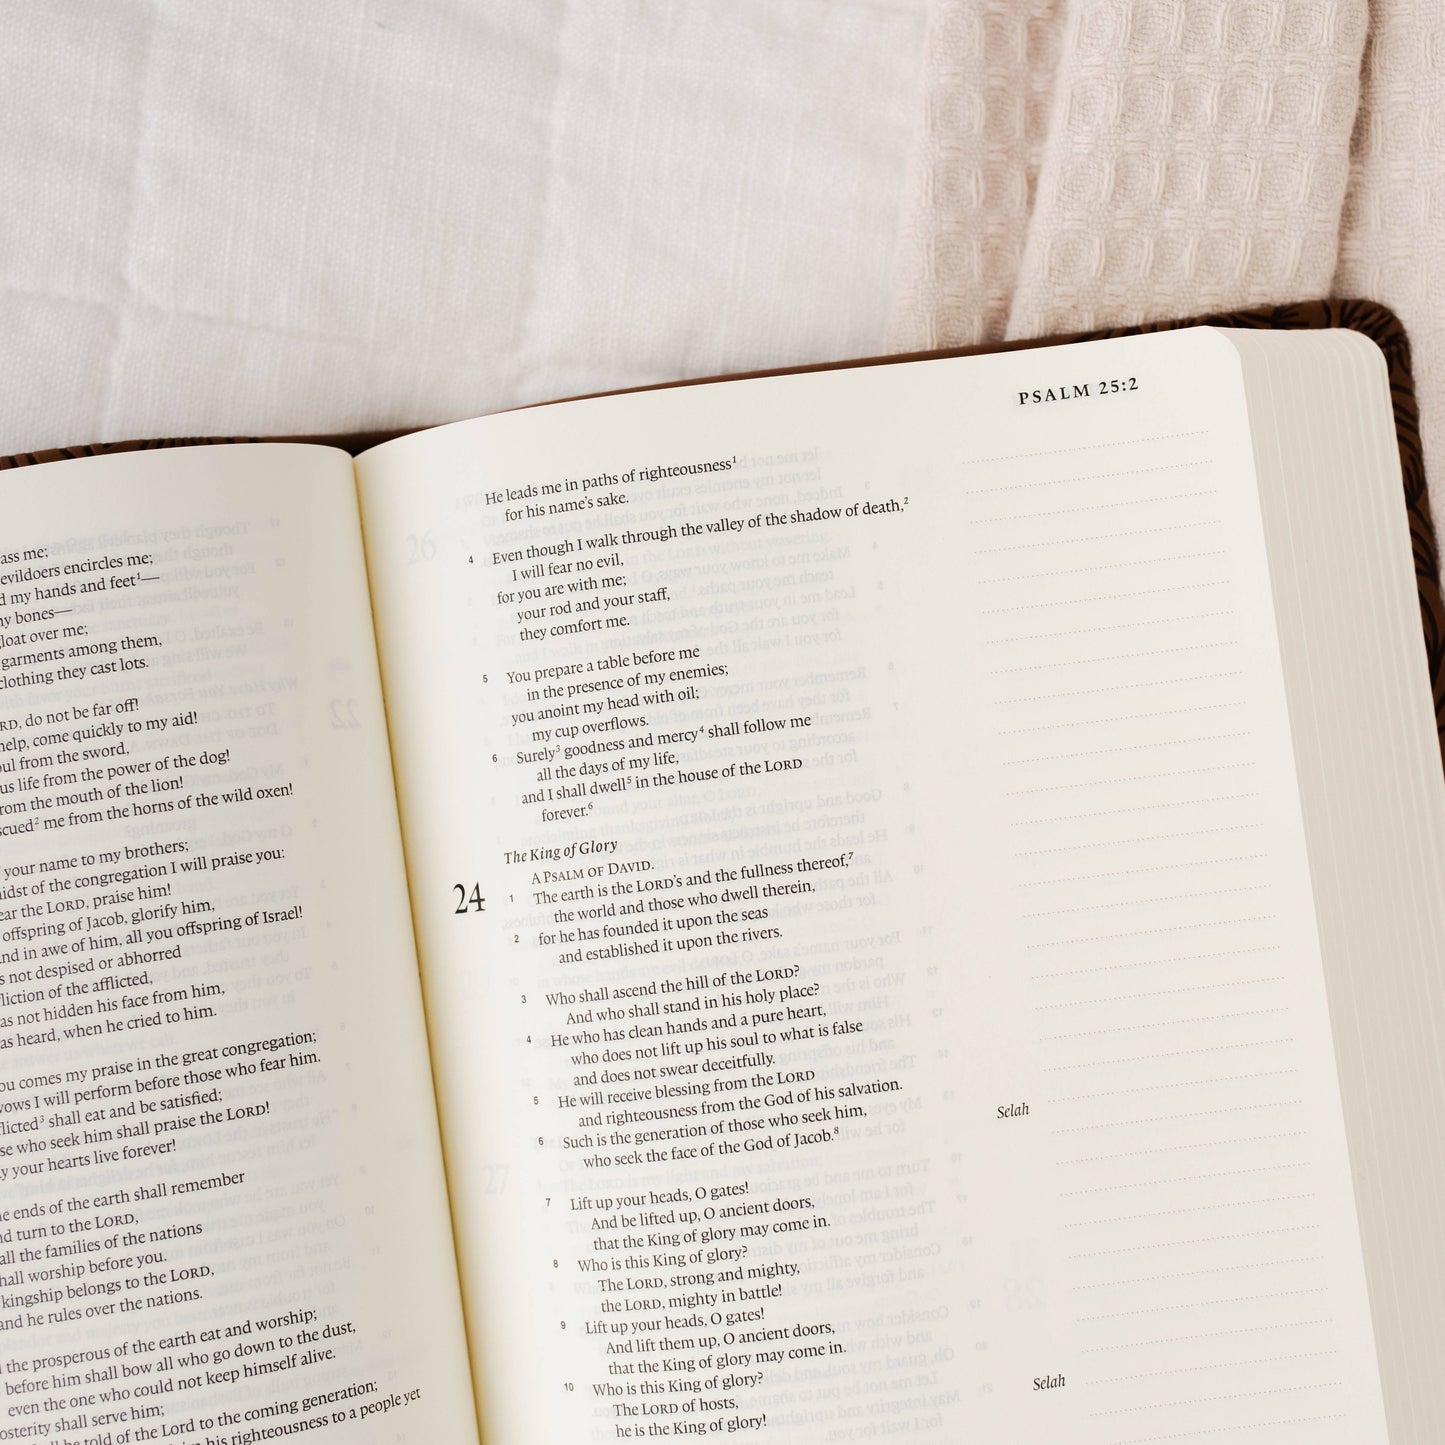 ass me;
evildoers encircles me;
d my hands and feet¹—
ny bones—
gloat over me;
garments among them,
clothing they cast lots.
RD, do not be far off!
help, come quickly to my aid!
oul from the sword,
us life from the power of the dog!
rom the mouth of the lion!
scued² me from the horns of the wild oxen!
your name to my brothers;
idst of the congregation I will praise you:
ear the LORD, praise him!
offspring of Jacob, glorify him,
nd in awe of him, all you offspring of Israel!
s not despised or abhorred
liction of the afflicted,
as not hidden his face from him,
as heard, when he cried to him.
ou comes my praise in the great congregation;
vows I will perform before those who fear him.
flicted³ shall eat and be satisfied;
se who seek him shall praise the LORD!
y your hearts live forever!
e ends of the earth shall remember
nd turn to the LORD,
all the families of the nations
hall worship before you.
kingship belongs to the LORD,
and he rules over the nations.
the prosperous of the earth eat and worship;
before him shall bow all who go down to the dust,
even the one who could not keep himself alive.
osterity shall serve him;
be told of the Lord to the coming generation;
his righteousness to a people yet
PSALM 25:2
He leads me in paths of righteousness¹
for his name's sake.
4 Even though I walk through the valley of the shadow of death,²
I will fear no evil,
for you are with me;
your rod and your staff,
they comfort me.
5 You prepare a table before me
in the presence of my enemies;
you anoint my head with oil;
my cup overflows.
6 Surely³ goodness and mercy⁴ shall follow me
all the days of my life,
and I shall dwell⁵ in the house of the LORD
forever.⁶
The King of Glory
A PSALM OF DAVID.
24 1 The earth is the LORD's and the fullness thereof,⁷
the world and those who dwell therein,
2 for he has founded it upon the seas
and established it upon the rivers.
3 Who shall ascend the hill of the LORD?
And who shall stand in his holy place?
4 He who has clean hands and a pure heart,
who does not lift up his soul to what is false
and does not swear deceitfully.
5 He will receive blessing from the LORD
and righteousness from the God of his salvation.
6 Such is the generation of those who seek him,
who seek the face of the God of Jacob.⁸ Selah
7 Lift up your heads, O gates!
And be lifted up, O ancient doors,
that the King of glory may come in.
8 Who is this King of glory?
The LORD, strong and mighty,
the LORD, mighty in battle!
9 Lift up your heads, O gates!
And lift them up, O ancient doors,
that the King of glory may come in.
10 Who is this King of glory?
The LORD of hosts,
he is the King of glory! Selah